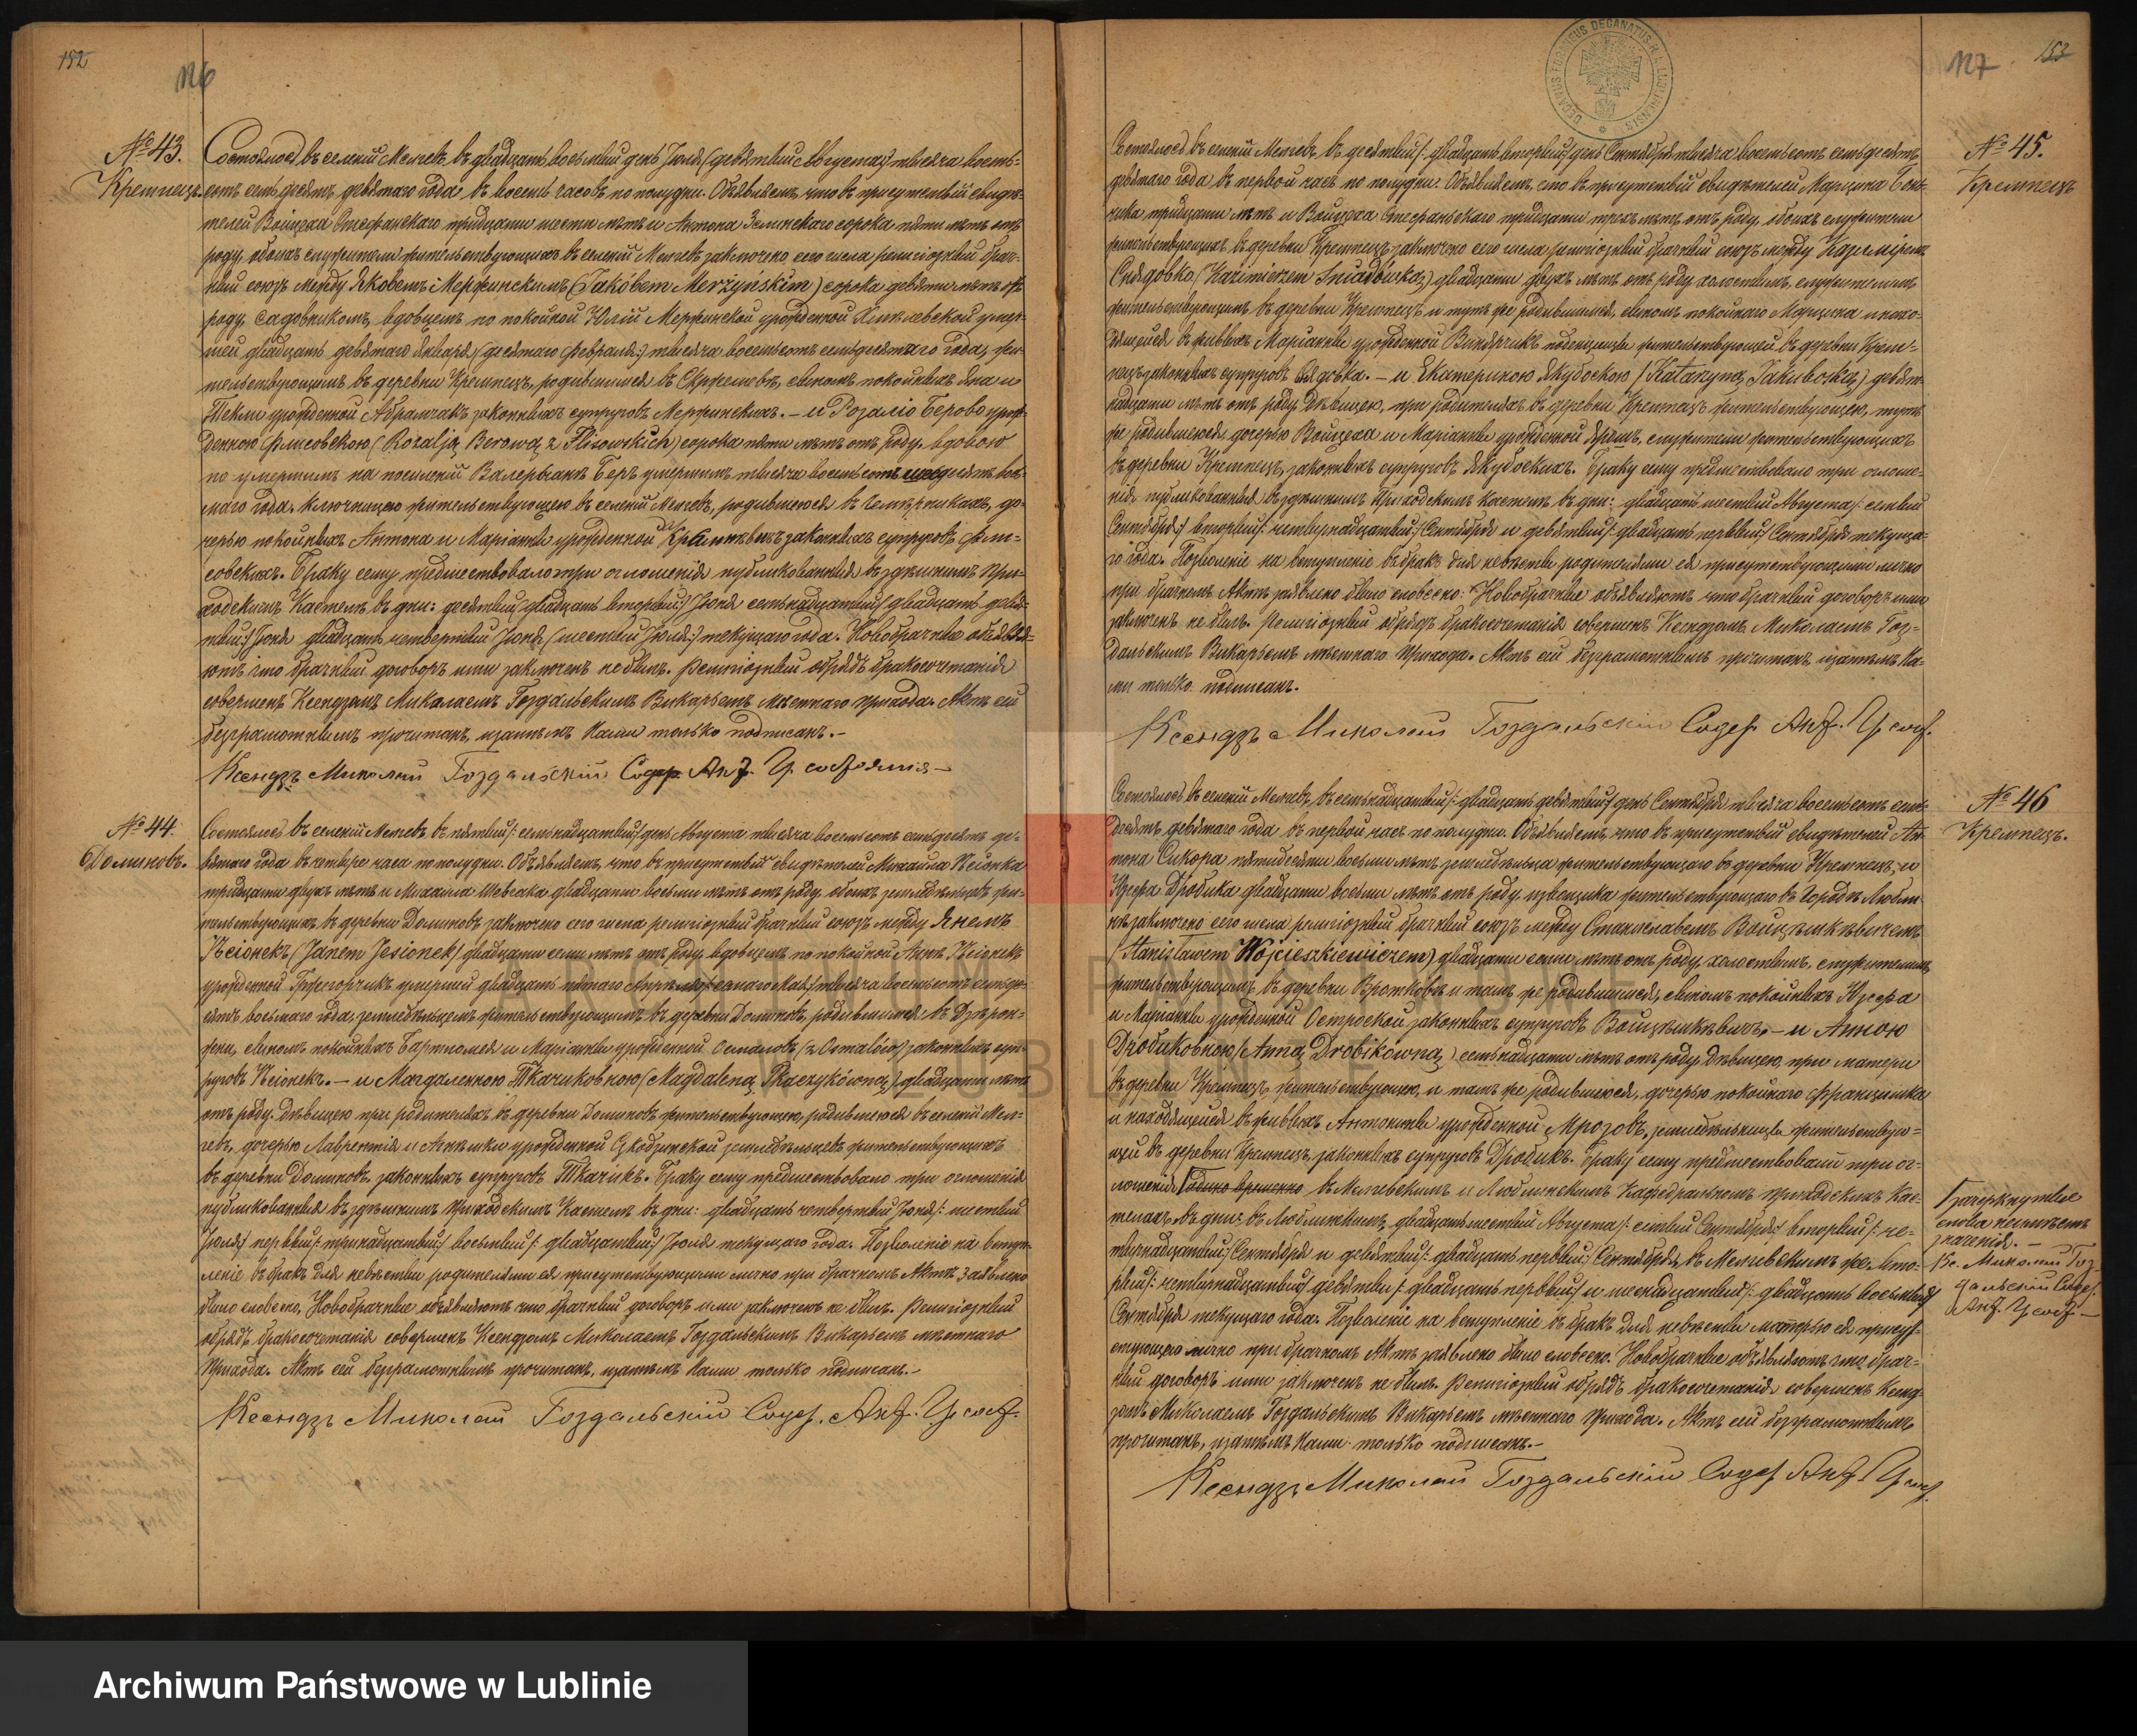 152
126
№ 43.
Кремпецъ.
Состоялось въ селеніи Мелгевъ, въ двадцать восьмый день Іюля (девятый Августа) тысяча восемь-
сотъ семьдесятъ девятаго года въ восемь часовъ по полудни. Объявляемъ, что въ присутствіи свидѣ-
телей Войцеха Стефанскаго тридцати шести лѣтъ и Антона Зелинскаго сорока пяти лѣтъ отъ
роду, обоихъ служителей жительствующихъ въ селеніи Мелгевъ заключено сего числа религіозный брач-
ный союзъ между Яковемъ Мержинскимъ (Jakóbem Merzyńskim) сорока девяти лѣтъ отъ
роду, садовникомъ, вдовцемъ по покойной Юліи Мержинской урожденной умер-
шей двадцать девятаго Января (десятаго Февраля) тысяча восемьсотъ семьдесятаго года, жи-
тельствующимъ въ деревни Кремпецъ, родившимся въ сыномъ покойныхъ Яна и
Текли урожденной Абрамчакъ законныхъ супруговъ Мержинскихъ. — и Розалію Берово урож-
денною Флисовскою (Rozalją Berową z Flisowskich) сорока пяти лѣтъ отъ роду, вдовою
по умершимъ на поселеніи Валерьянѣ Беръ умершимъ тысяча восемьсотъ вось-
маго года, ключницею жительствующею въ селеніи Мелгевъ, родившеюся въ до-
черью покойныхъ Антона и Маріанны урожденной законныхъ супруговъ Фли-
совскихъ. Браку сему предшествовало три оглошенія публикованныя въ здѣшнимъ При-
ходскимъ Костелѣ въ дни: десятый (двадцать вторый) Іюня семьнадцатый (двадцать девя-
тый) Іюня двадцать четвертый Іюня (шестый Іюля) текущаго года. Новобрачные объявля-
ютъ что брачный договоръ ими заключенъ не былъ. Религіозный обрядъ бракосочетанія
совершенъ Ксендзомъ Миколаемъ Гоздальскимъ Викарьемъ мѣстнаго прихода. Актъ сей
безграмотнымъ прочитанъ, изатѣмъ Нами только подписанъ.—
Ксендзъ Миколай Гоздальскій Содер. Ак. Гр. состоянія—
№ 44.
Доминовъ.
Состоялось въ селеніи Мелгевъ въ пятый/: семьнадцатый/ день Августа тысяча восемьсотъ семьдесятъ де-
вятаго года въ четыре часа по полудни. Объявляемъ, что въ присутствіи свидѣтелей Михаила Ѣсіонка
тридцати двухъ лѣтъ и Михаила Шевсака двадцати восьми лѣтъ отъ роду, обоихъ земледѣльцовъ жи-
тельствующихъ въ деревни Доминовъ заключено сего числа религіозный брачный союзъ между Янемъ
Ѣсіонекъ (Janem Jesionek) двадцати семи лѣтъ отъ роду вдовцемъ по покойной Аннѣ Ѣсіонекъ
урожденной Гржегорчикъ умершей двадцать пятаго Апрѣля/ седмаго Мая/ тысяча восемьсотъ семьде-
сятъ восьмаго года, земледѣльцемъ жительствующимъ въ деревни Доминовъ, родившимся въ
сыномъ покойныхъ Бартломея и Маріанны урожденной Осталовъ (z Ostalów) законныхъ суп-
руговъ Ѣсіонекъ. — и Магдаленною Ткачиковною (Magdaleną Tkaczykówną) двадцати лѣтъ
отъ роду, дѣвицею при родителяхъ въ деревни Доминовъ жительствующею, родившеюся въ селеніи Мел-
гевъ, дочерью Лаврентія и Агнѣшки урожденной земледѣльцевъ жительствующихъ
въ деревни Доминовъ законныхъ супруговъ Ткачикъ. Браку сему предшествовало три оглошенія
публикованныя въ здѣшнимъ Приходскимъ Костелѣ въ дни: двадцать четвертый Іюня/: шестый
Іюля/ первый/: тринадцатый/ восьмый/: двадцатый/ Іюля текущаго года. Позволеніе на вступ-
леніе въ бракъ для невѣсты родителями ея присутствующими лично при брачномъ Актѣ заявлено
было словесно. Новобрачные объявляютъ что брачный договоръ ими заключенъ не былъ. Религіозный
обрядъ бракосочетанія совершенъ Ксендзомъ Миколаемъ Гоздальскимъ Викарьемъ мѣстнаго
Прихода. Актъ сей безграмотнымъ прочитанъ, изатѣмъ Нами только подписанъ.—
Ксендзъ Миколай Гоздальскій Содер. Ак. Гр. сост.
153
127
№ 45.
Кремпецъ
Состоялось въ селеніи Мелгевъ, въ десятый/: двадцать вторый/ день Сентября тысяча восемьсотъ семьдесятъ
девятаго года въ первой часъ по полудни. Объявляемъ, что въ присутствіи свидѣтелей Марцина
тридцати лѣтъ и Войцеха Стефанскаго тридцати трехъ лѣтъ отъ роду, обоихъ служители
жительствующихъ въ деревни Кремпецъ заключено сего числа религіозный брачный союзъ между Казимѣремъ
Снядовко (Kazimierzem Sniadówką) двадцати двухъ лѣтъ отъ роду холостымъ, служителемъ
жительствующимъ въ деревни Кремпецъ и тутъ же родившимся, сыномъ покойнаго Марцина и нахо-
дящейся въ живыхъ Маріанны урожденной Винярчикъ жительствующей въ деревни Крем-
пецъ законныхъ супруговъ Снядовка. — и Екатериною Якубоскою (Katarzyną Jakuboską) девят-
надцати лѣтъ отъ роду, дѣвицею, при родителяхъ въ деревни Кремпецъ жительствующею, тутъ
же родившеюся, дочерью Войцеха и Маріанны урожденной служители жительствующихъ
въ деревни Кремпецъ, законныхъ супруговъ Якубоскихъ. Браку сему предшествовало три оглоше-
нія публикованныя въ здѣшнимъ Приходскимъ Костелѣ въ дни: двадцать шестый Августа/: семый
Сентября/ вторый/: четырнадцатый/ Сентября и девятый/: двадцать первый/ Сентября текуща-
го года. Позволеніе на вступленіе въ бракъ для невѣсты родителями ея присутствующими лично
при брачномъ Актѣ заявлено было словесно. Новобрачные объявляютъ что брачный договоръ ими
заключенъ не былъ. Религіозный обрядъ бракосочетанія совершенъ Ксендзомъ Миколаемъ Гоз-
дальскимъ Викарьемъ мѣстнаго Прихода. Актъ сей безграмотнымъ прочитанъ изатѣмъ На-
ми только подписанъ.
Ксендзъ Миколай Гоздальскій Содер. Ак. Гр. сост.
№ 46
Кремпецъ.
Состоялось въ селеніи Мелгевъ, въ семьнадцатый/: двадцать девятый/ день Сентября тысяча восемьсотъ семь-
десятъ девятаго года въ первой часъ по полудни. Объявляемъ, что въ присутствіи свидѣтелей Ан-
тона Сикора пятидесяти восьми лѣтъ земледѣльца жительствующаго въ деревни Кремпецъ, и
Юзефа Дробика двадцати восьми лѣтъ отъ роду, извощика жительствующаго въ городѣ Любли-
нѣ заключено сего числа религіозный брачный союзъ между Станиславемъ Войцѣшкѣвичемъ
(Stanisławem Wojcieszkiewiczem) двадцати семи лѣтъ отъ роду, холостымъ, служителемъ
жительствующимъ въ деревни Вротковъ и тамъ же родившимся, сыномъ покойныхъ Юзефа
и Маріанны урожденной Остроской законныхъ супруговъ Войцѣшкѣвичъ, — и Анною
Дробиковною (Anną Drobikówną) семьнадцати лѣтъ отъ роду дѣвицею, при матери
въ деревни Кремпецъ жительствующею, и тамъ же родившеюся, дочерью покойнаго Францишка
и находящейся въ живыхъ Антонины урожденной Мрозовъ, земледѣльницы жительствую-
щей въ деревни Кремпецъ, законныхъ супруговъ Дробикъ. Браку сему предшествовали три ог-
лошенія въ Мелгевскимъ и Люблинскимъ Кафедральномъ приходскихъ Кос-
телахъ въ дни: въ Люблинскимъ двадцать шестый Августа/: семый Сентября/ вторый/: че-
тырнадцатый/ Сентября и девятый/: двадцать первый/ Сентября, въ Мелгевскимъ же вто-
рый/: четырнадцатый/ девятый/: двадцать первый/ и шеснадцатый/: двадцать восьмый/
Сентября текущаго года. Позволеніе на вступленіе въ бракъ для невѣсты матерью ея присут-
ствующею лично при брачномъ Актѣ заявлено было словесно. Новобрачные объявляютъ что брач-
ный договоръ ими заключенъ не былъ. Религіозный обрядъ бракосочетанія совершенъ Ксенд-
зомъ Миколаемъ Гоздальскимъ Викарьемъ мѣстнаго Прихода. Актъ сей безграмотнымъ
прочитанъ, изатѣмъ Нами только подписанъ.—
Ксендзъ Миколай Гоздальскій Содер. Ак. Гр. сост.
Зачеркнутые
слова
значенія.—
Кс. Миколай Гоз-
дальскій Содер.
Ак. Гр. сост.—
ARCHIWUM PAŃSTWOWE
W LUBLINIE
Archiwum Państwowe w Lublinie